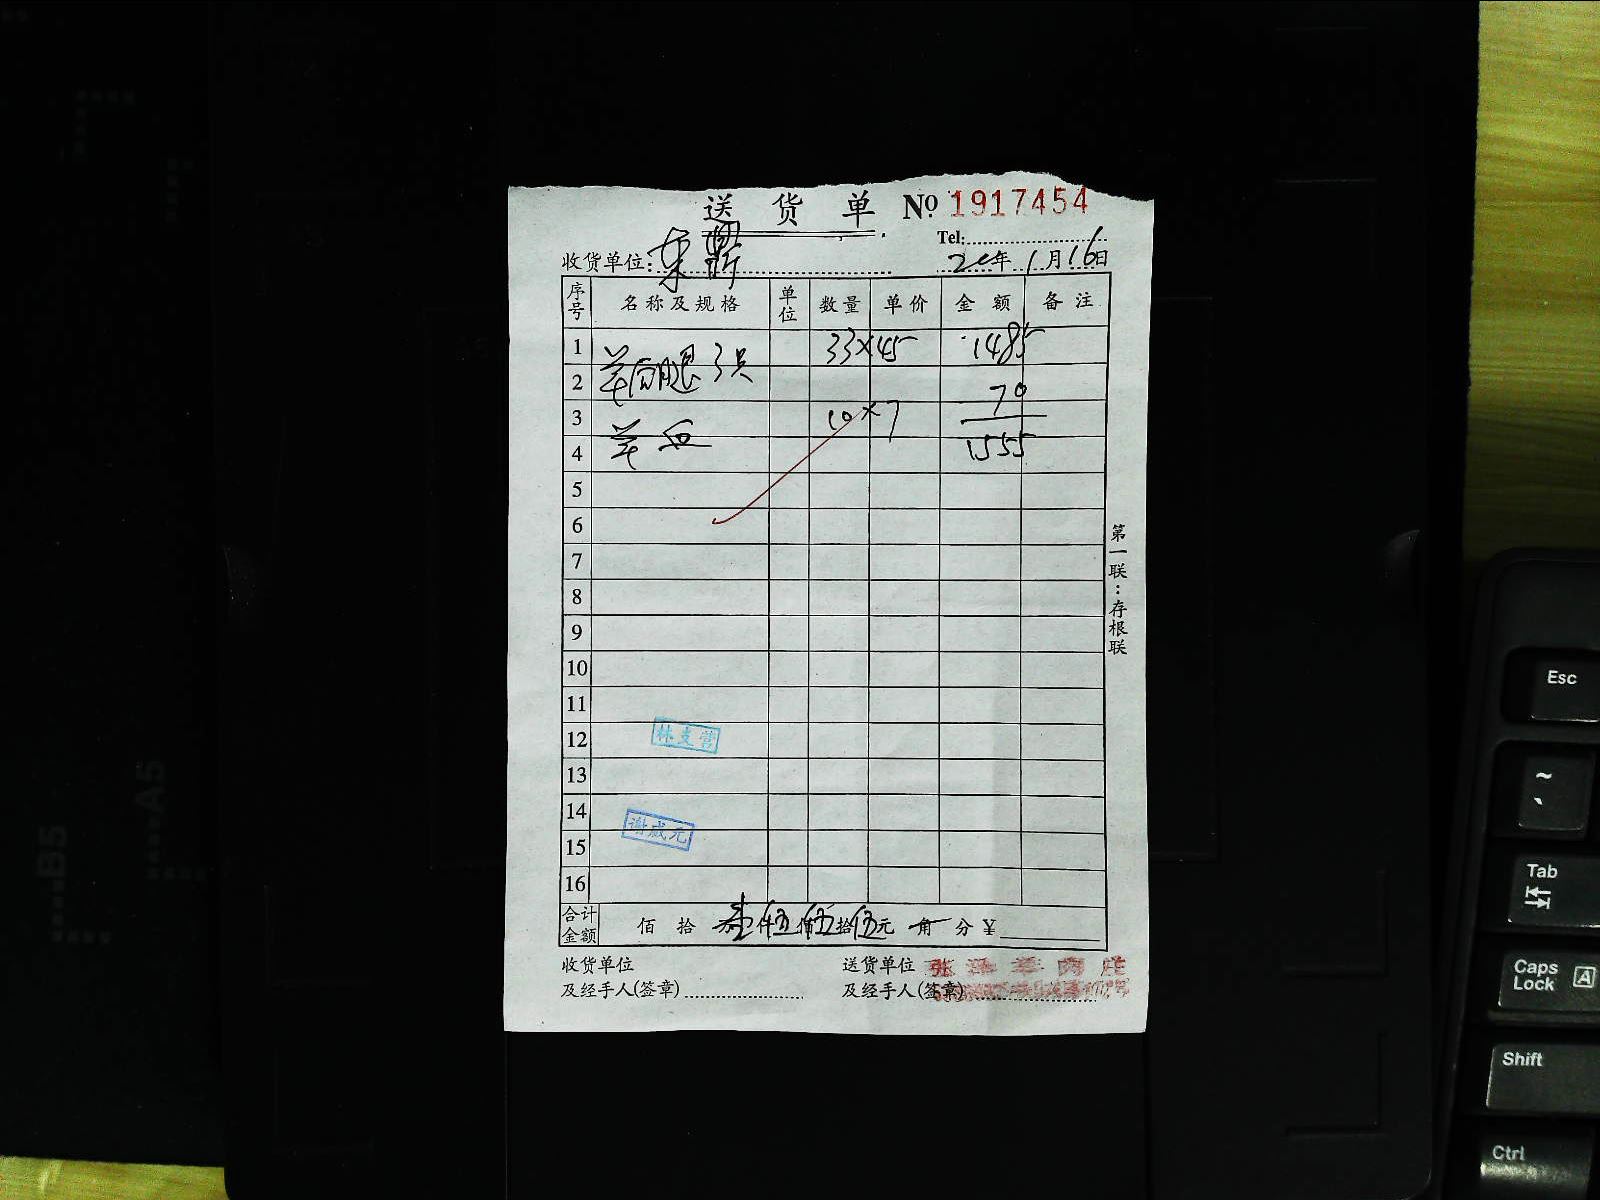 送货单 Nº 1917454
Tel:
收货单位: 東 20年1月16日
序号 名称及规格 单位 数量 单价 金额 备注
1 33×45 1485
2 羊后腿 3只 70
3 10×7
4 羊血 1555
5
6
7
8
9
10
11
12 林支营
13
14 谢成元
15
16
合计金额 佰 拾 壹万 伍仟 伍佰 伍拾 元 角 分 ¥
收货单位 送货单位 张
及经手人(签章) 及经手人(签章)
第一联:存根联
B5
A5
Esc
~
`
Tab
Caps Lock A
Shift
Ctrl